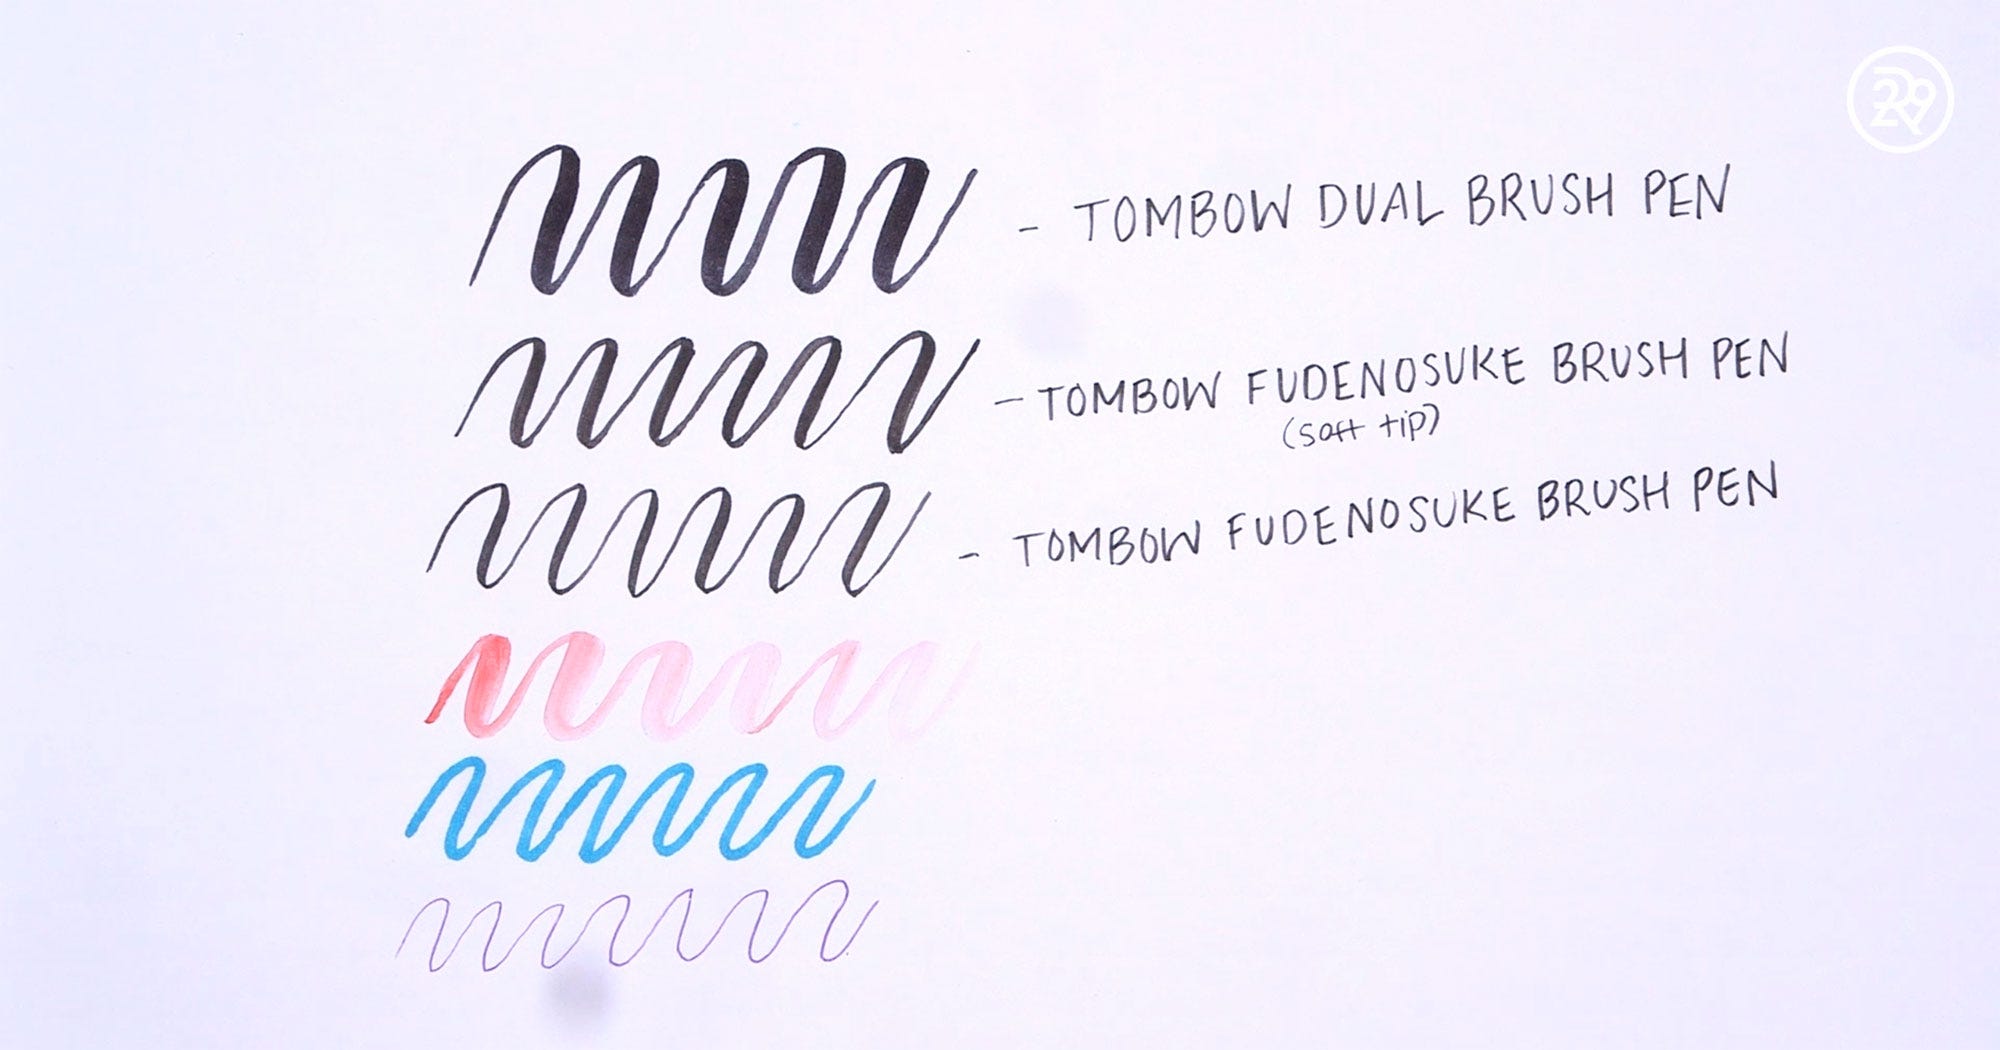 R29
- TOMBOW DUAL BRUSH PEN
- TOMBOW FUDENOSUKE BRUSH PEN
(soft tip)
- TOMBOW FUDENOSUKE BRUSH PEN